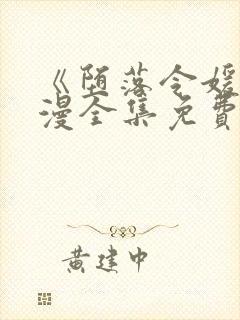 《堕落令嫒
漫全集免費
黄建中